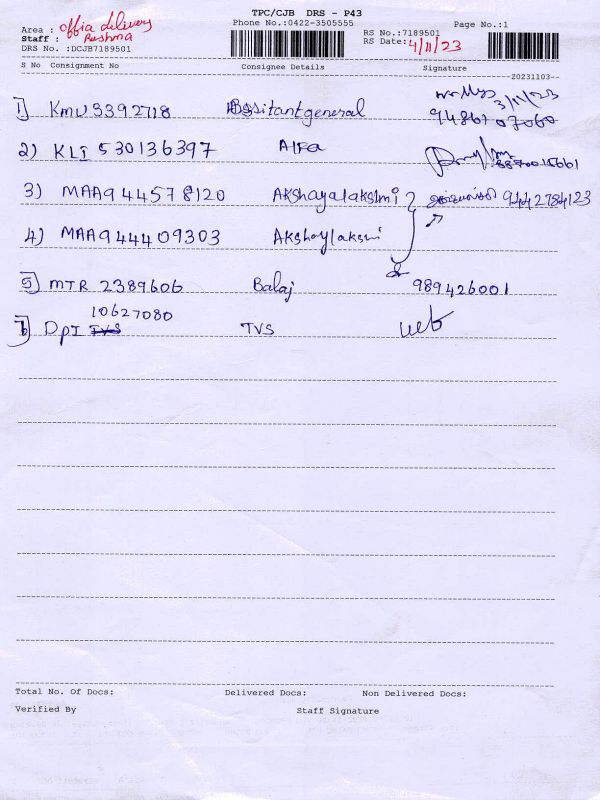 TPC/CJB DRS - P43
Area : offia delivery
Phone No.:0422-3505555
Page No.:1
Staff : Reshma
RS No.:7189501
DRS No. :DCJB7189501
RS Date: 4/11/23
S No Consignment No Consignee Details Signature
20231103
3/11/23
1) KMU3392718 Assitantgeneral 94861 07060
2) KLI 530136397 Alfa
3) MAA944578120 Akshayalakslmi 9442784123
4) MAA944409303 Akshaylaksmi
5) MTR 2389606 Balaj 989426001
10627080
6) DPI TVS TVS
Total No. Of Docs: Delivered Docs: Non Delivered Docs:
Verified By Staff Signature